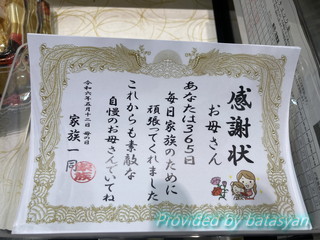 感謝状
お母さん
あなたは365日
毎日家族のために
頑張ってくれました
これからも素敵な
自慢のお母さんでいてね
令和六年五月十二日 母の日
家族一同
家族
Provided by batasyan